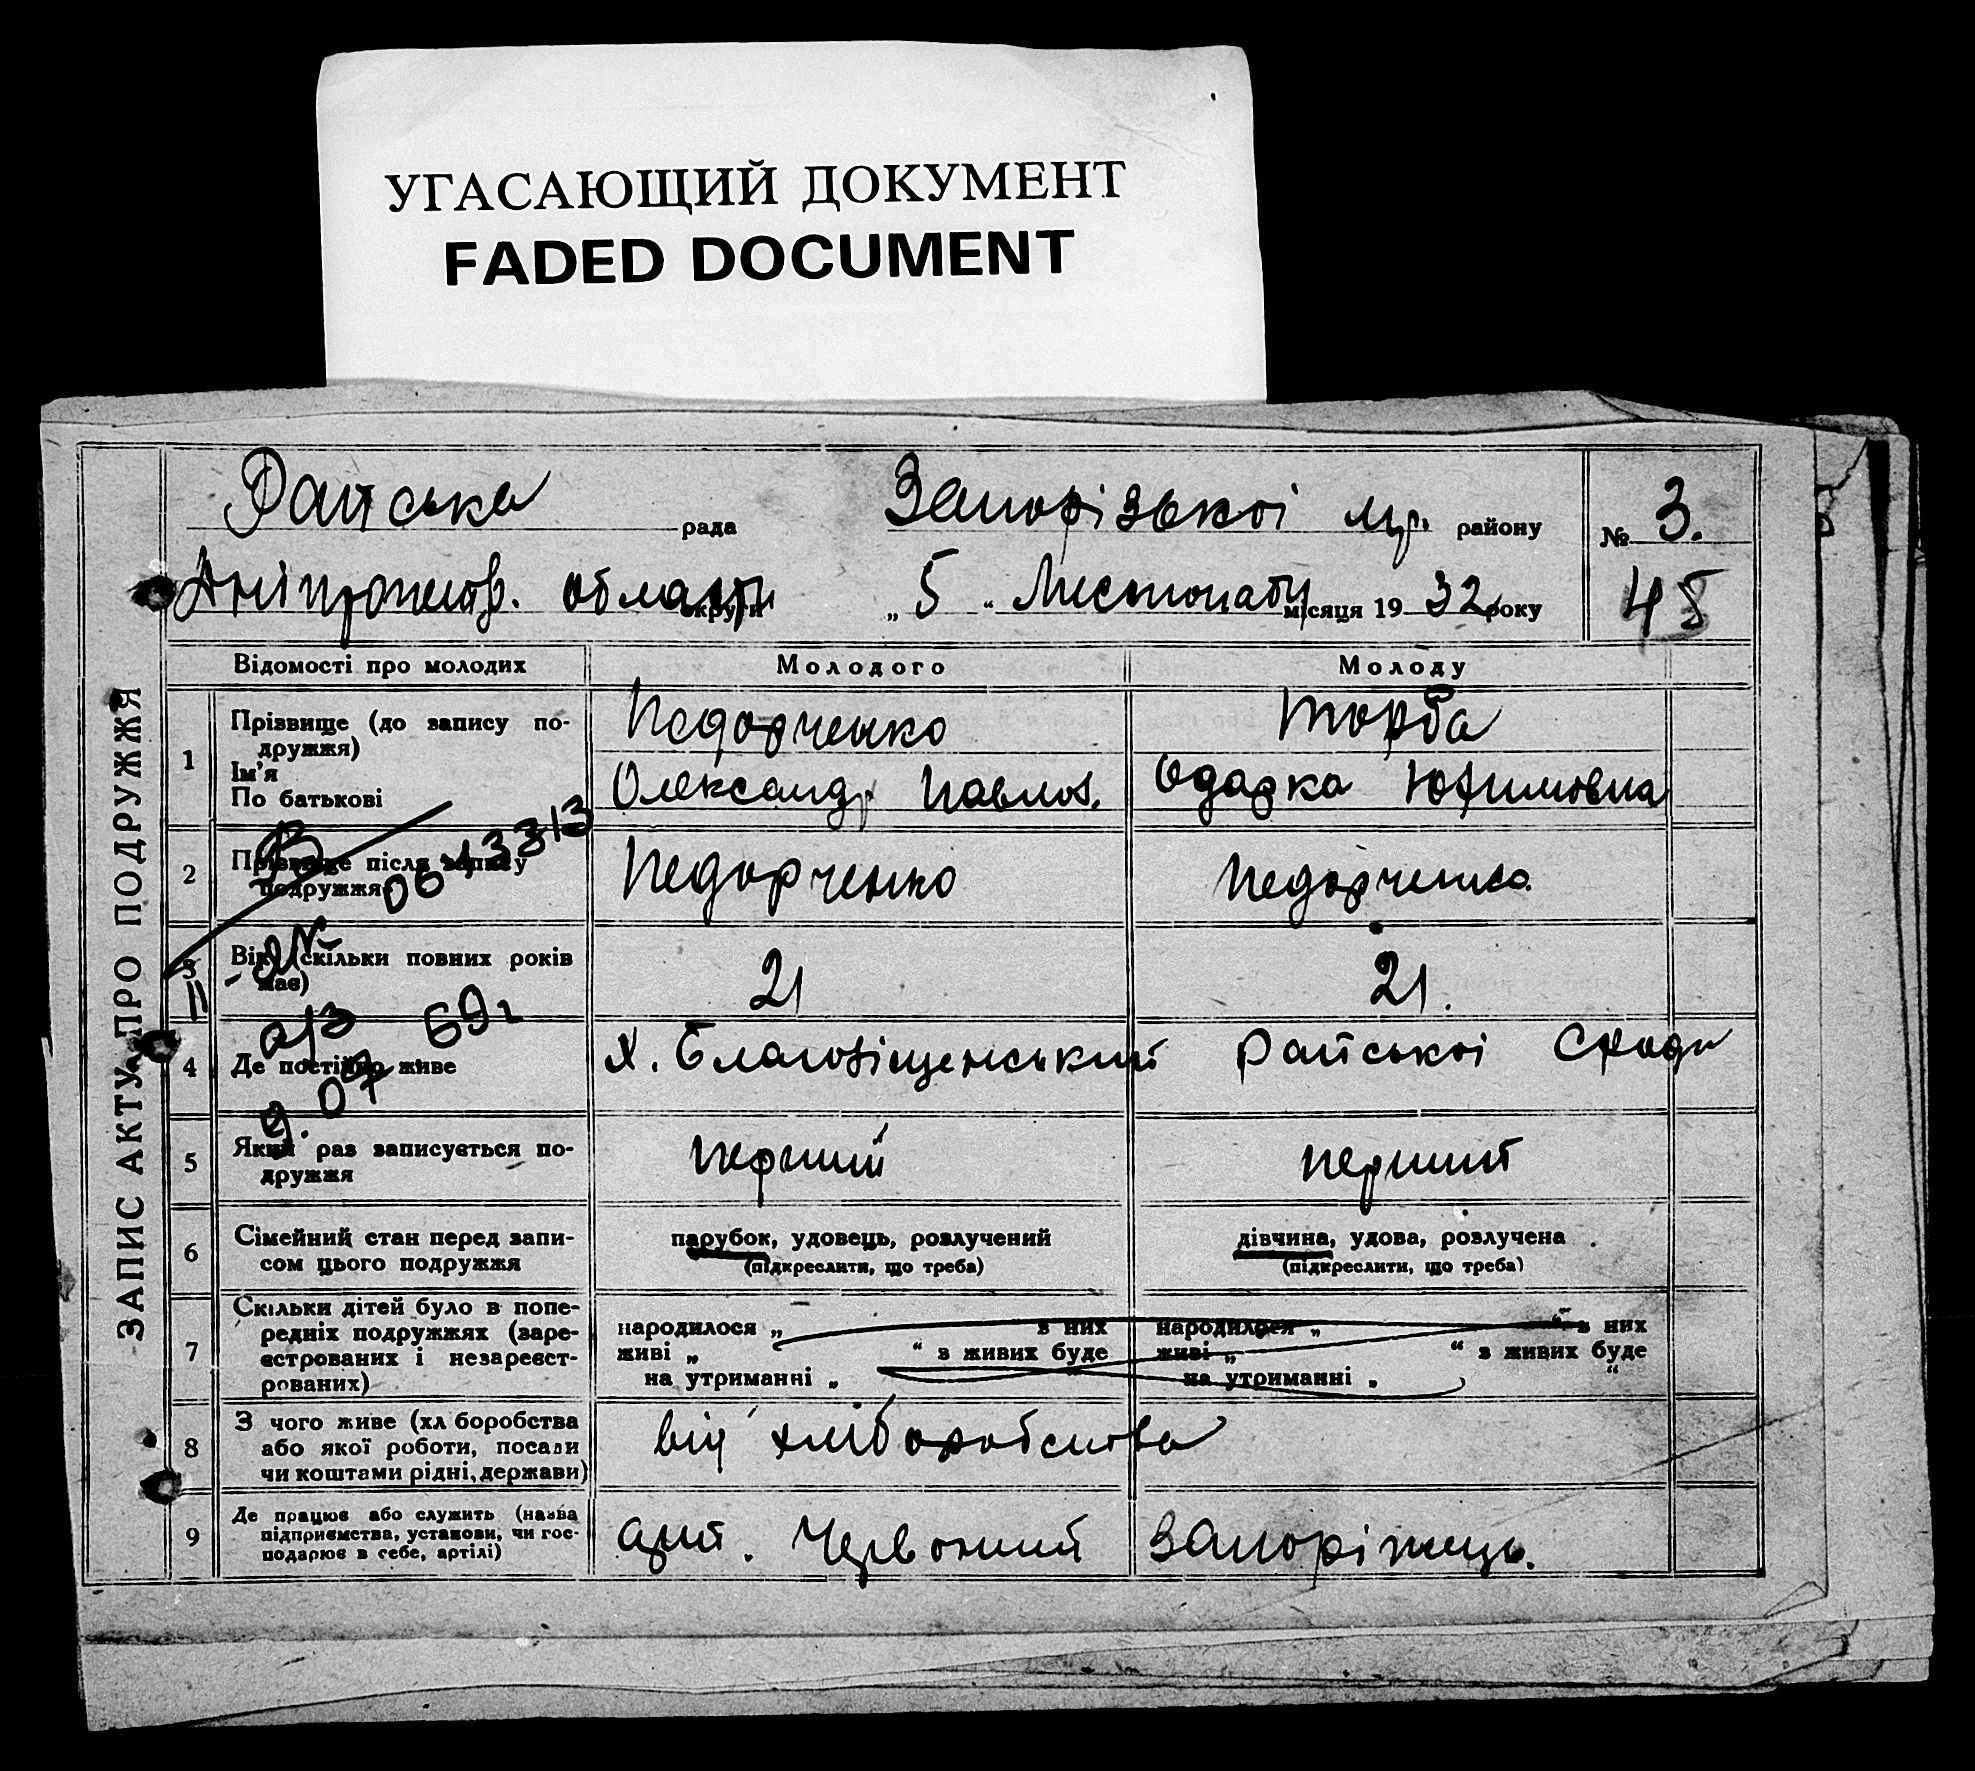 УГАСАЮЩИЙ ДОКУМЕНТ
FADED DOCUMENT
ЗАПИС АКТУ ПРО ПОДРУЖЖЯ
Райська рада Запорізької району № 3.
області округи „ 5 “ Листопаду місяця 19 32 року 45
Відомості про молодих Молодого Молоду
1 Прізвище (до запису по-
дружжя)
Ім'я
По батькові
Педорченко Торба
Олександр Павлов. Одарка Юхимовна
2 Прізвище після запису
подружжя
Педорченко Педорченко
3 Вік (скільки повних років
має)
21 21.
69г
9.07
4 Де постійно живе
х. Благовіщенський Райської Сради
5 Який раз записується по-
дружжя
перший перший
6 Сімейний стан перед запи-
сом цього подружжя
парубок, удовець, розлучений дівчина, удова, розлучена
(підкреслити, що треба) (підкреслити, що треба)
7 Скільки дітей було в попе-
редніх подружжях (заре-
єстрованих і незареєст-
рованих)
народилося „ з них народилося „ “ з них
живі „ “ з живих буде живі „ “ з живих буде
на утриманні „ на утриманні „ “
8 З чого живе (хл боробства
або якої роботи, посади
чи коштами рідні, держави)
від хліборобства
9 Де працює або служить (назва
підприємства, установи, чи гос-
подарює в себе, артілі)
Червоний Запоріжець.